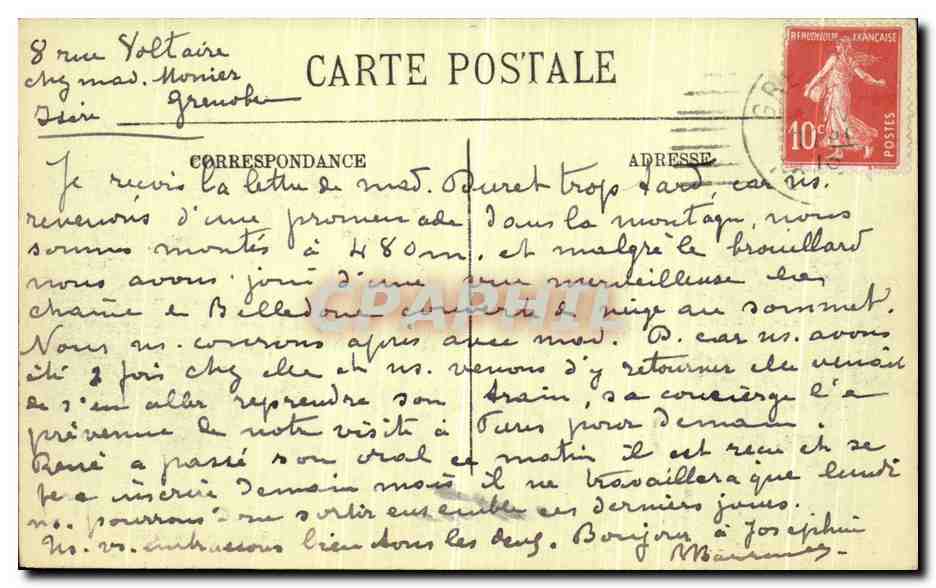 8 rue Voltaire
chez mad. Monier
Grenoble
Isère
CARTE POSTALE
REPUBLIQUE FRANÇAISE
10c
POSTES
CORRESPONDANCE
ADRESSE
Je reçois la lettre de mad. Buret trop tard, car ns.
revenons d'une promenade dans la montagne, nous
sommes montés à 480m. et malgré le brouillard
nous avons joui d'une vue merveilleuse la
chaîne de Belledone couverte de neige au sommet.
Nous ns. courons après avec mad. B. car ns. avons
été 2 fois chez elle et ns. venons d'y retourner elle venait
de s'en aller reprendre son train, sa concierge l'a
prévenue de notre visite à pour demain.
René a passé son oral ce matin il est reçu et se
fera inscrire demain mais il ne travaillera que lundi
ns. pourrons sortir ensemble ces derniers jours.
Ns. vs. embrassons bien tous les deux. Bonjour à Joséphine
CPAPHIL